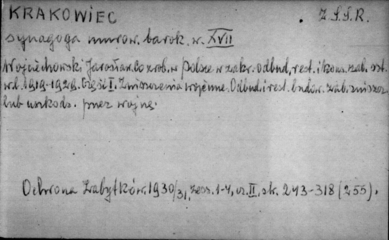 KRAKOWIEC Z.S.S.R.
synagoga murow. barok. w. XVII
Wojciechowski Jarosław. Co zrob. w Polsce w zakr. odbud, rest. i kons. zab. szt.
w l. 1919-1929. Część I. Zniszczenia wojenne. Odbud. i rest. budow. zab. zniszcz.
lub uszkodz. przez wojnę.
Ochrona Zabytków. 1930/31, zesz. 1-4, cz. II, sk. 243-318 (255).